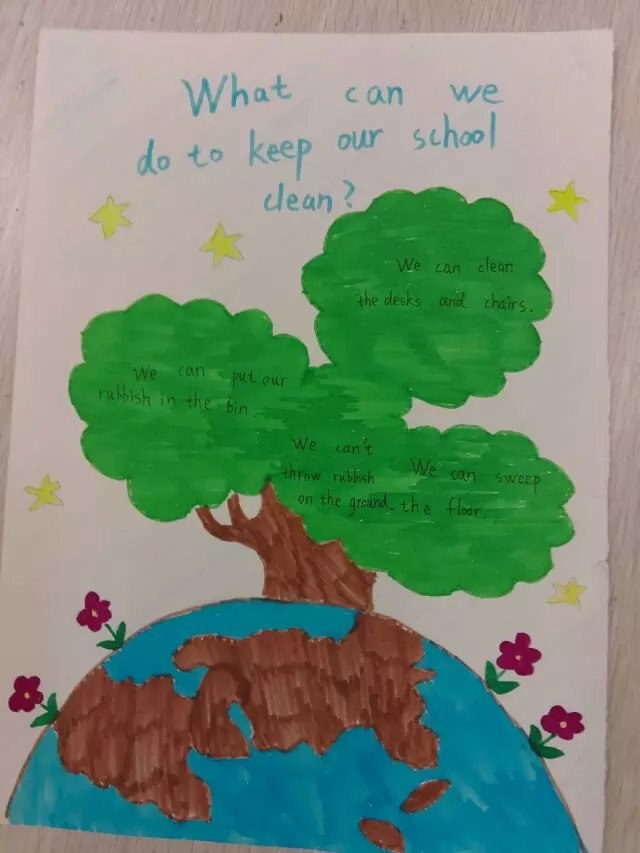 What can we
do to keep our school
clean?
We can clean
the desks and chairs.
We can put our
rubbish in the bin.
We can't
throw rubbish
on the ground.
We can sweep
the floor.